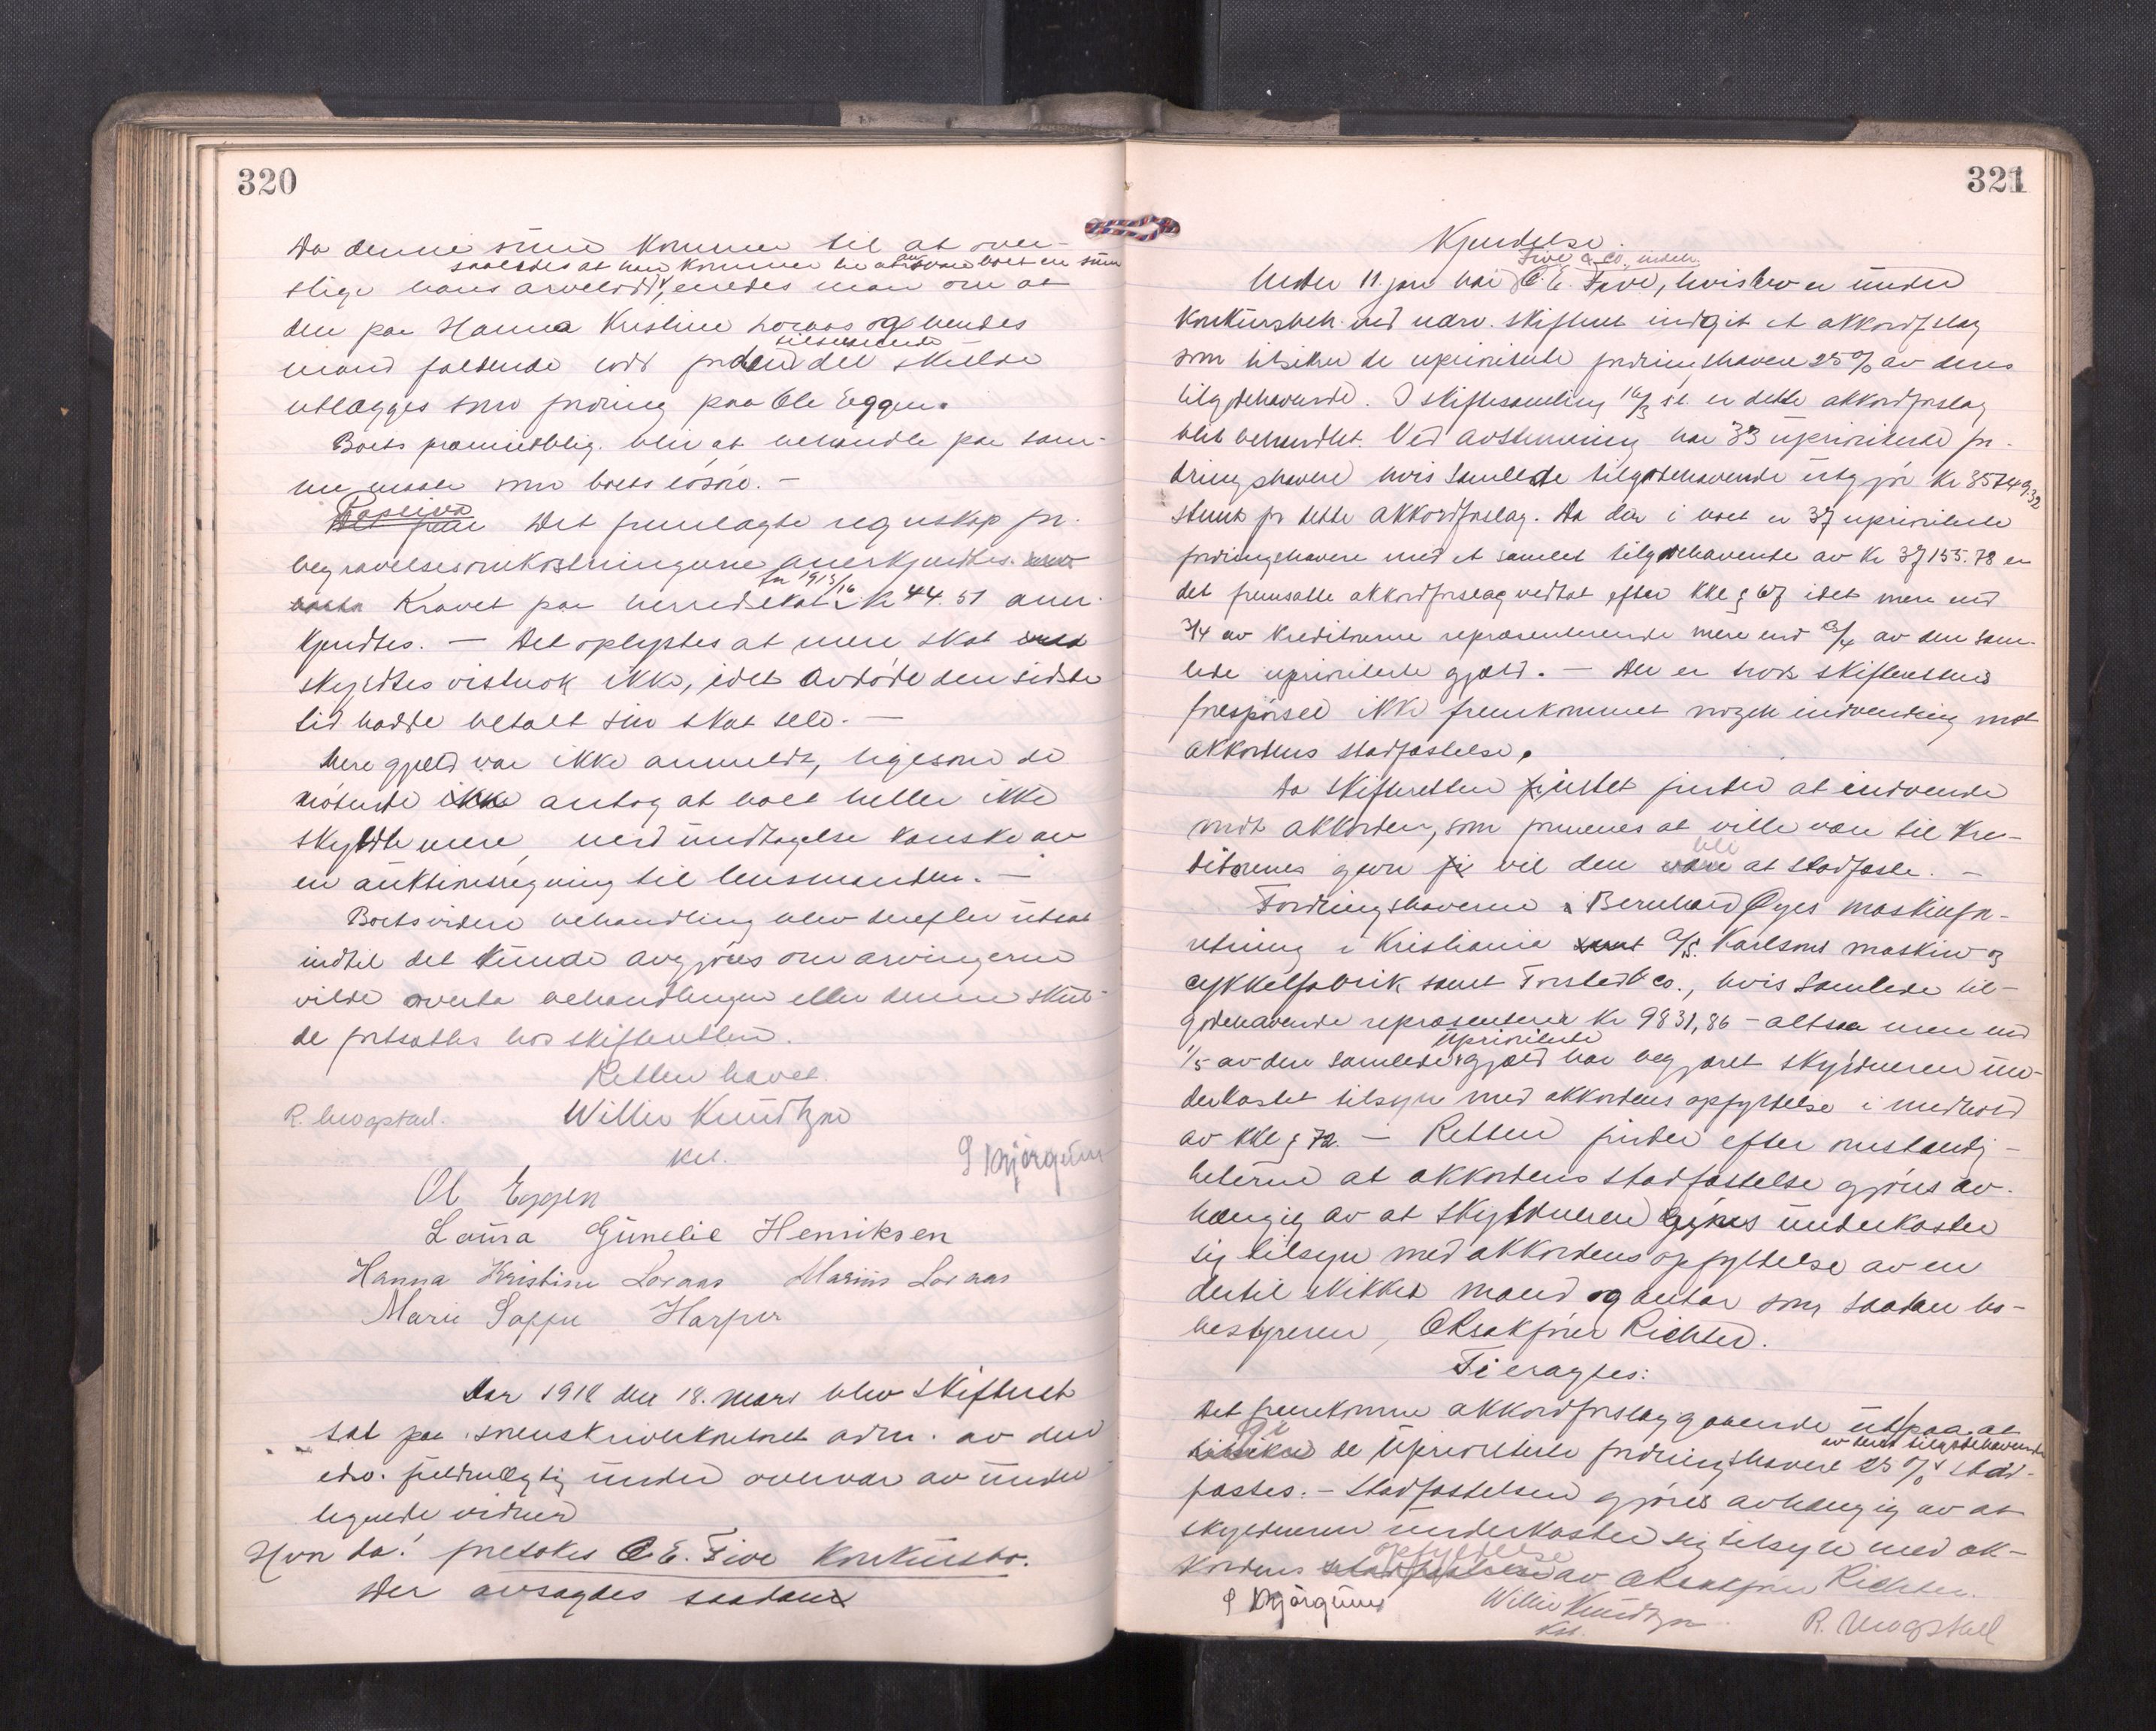 320
Da denne sum kommer til at over-
saaledes at han kommer til at svare boet en sum
stige hans arvelodd, enedes man om at
den paa Hanna Kristine Loraas og hendes
mand faldende lodd for den del skulde
tilsvarende
utlægges som fordring paa Ole Eggen.
Boets præmieoblig. blir at behandle paa sam-
me maate som boets løsøre. -
Passiva
Det fremlagte regnskap for
begravelsesomkostningerne anerkjendtes.
for 1915/16
Kravet paa herredskat kr 44.51 aner-
kjendtes. - Det oplystes at mere skat
skyldtes vistnok ikke, idet avdøde den sidste
tid hadde betalt sin skat selv. -
Mere gjæld var ikke anmeldt, ligesom de
møtende antog at boet heller ikke
skyldte mere, med undtagelse kanske av
en auktionsregning til lensmanden. -
Boets videre behandling blev derefter utsat
indtil det kunde avgjøres om arvingerne
vilde overta behandlingen eller denne skul-
de fortsættes hos skifteretten.
Retten hævet.
R. Mogstad. Willie Knudtzon
kst.
S Bjørgum
Ol Eggen
Laura Gunelie Henriksen
Hanna Kristine Loraas Marius Loraas
Marie Sappe Harper
Aar 1918 den 18. mars blev skifteret
sat paa sorenskriverkontoret adm. av den
edsv. fuldmægtig under overvær av under-
tegnede vidner
Hvorda! foretokes C. E. Five konkursbo.
Der avsagdes saadan
321
Kjendelse.
Five & Co., indeh.
Under 11. jan har C. E. Five, hvis bo er under
konkursbeh. ved nærv. skifteret indgit et akkordforslag
som tilsikrer de uprioriterte fordringshavere 25 % av deres
tilgodehavende. I skiftesamling 16/3 d.a. er dette akkordforslag
blit behandlet. Ved avstemning har 33 uprioriterte for-
dringshavere hvis samlede tilgodehavende utgjør kr 35749.32
stemt for dette akkordforslag. Da der i boet er 37 uprioriterte
fordringshavere med et samlet tilgodehavende av kr 37155.78 er
det fremsatte akkordforslag vedtat efter kkl § 67 idet mere end
3/4 av kreditorerne repræsenterende mere end 3/4 av den sam-
lede uprioriterte gjæld. - Der er trods skifterettens
forespørsel ikke fremkommet nogen indvending mot
akkordens stadfæstelse.
Da skifteretten intet finder at indvende
mot akkorden, som formenes at ville være til kre-
ditorenes gavn vil den bli at stadfæste. -
Fordringshaverne Bernhard Øyes maskinfor-
retning i Kristiania A/S. Karlsons maskin og
cykkelfabrik samt Forsted & Co., hvis samlede til-
godehavende repræsenterer kr 9831,86 - altsaa mere end
uprioriterte
1/5 av den samlede gjæld har begjæret skyldneren un-
derkastet tilsyn med akkordens opfyldelse i medhold
av kkl § 72. - Retten finder efter omstændig-
heterne at akkordens stadfæstelse gjøres av-
hængig av at skyldneren underkaster
sig tilsyn med akkordens opfyldelse av en
dertil skikket mand og antar som saadan bo-
bestyreren, O.R.sakfører Richter.
Ti eragtes:
Det fremkomne akkordforslag gaaende ut paa at
gi de uprioriterte fordringshavere 25 % av deres tilgodehavende stad-
fæstes. - Stadfæstelsen gjøres avhængig av at
skyldneren underkaster sig tilsyn med ak-
opfyldelse
kordens av O.R.sakfører Richter.
S Bjørgum Willie Knudtzon
kst.
R. Mogstad